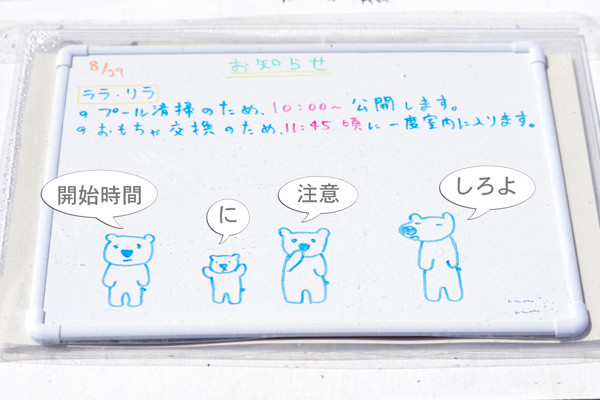 8/29
お知らせ
ララ・リラ
プール清掃のため、10:00〜公開します。
おもちゃ交換のため、11:45頃に一度室内に入ります。
開始時間
に
注意
しろよ